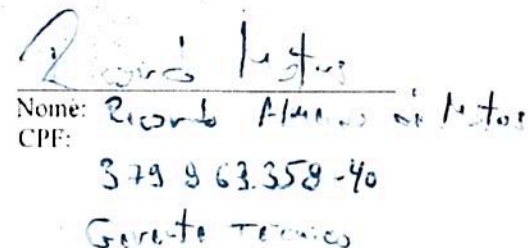 Ricardo Matos
Nome: Ricardo de Matos
CPF:
379 963.358-40
Gerente Técnico